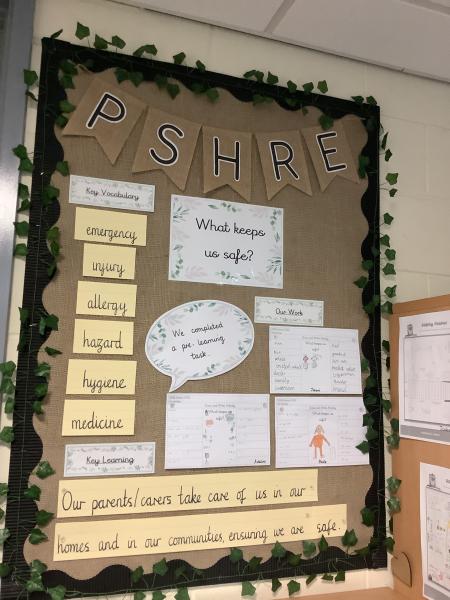 PSHRE
Key Vocabulary
emergency
injury
allergy
hazard
hygiene
medicine
What keeps
us safe?
We completed
a pre-learning
task.
Our Work
Key Learning
Our parents/carers take care of us in our
homes and in our communities, ensuring we are safe.